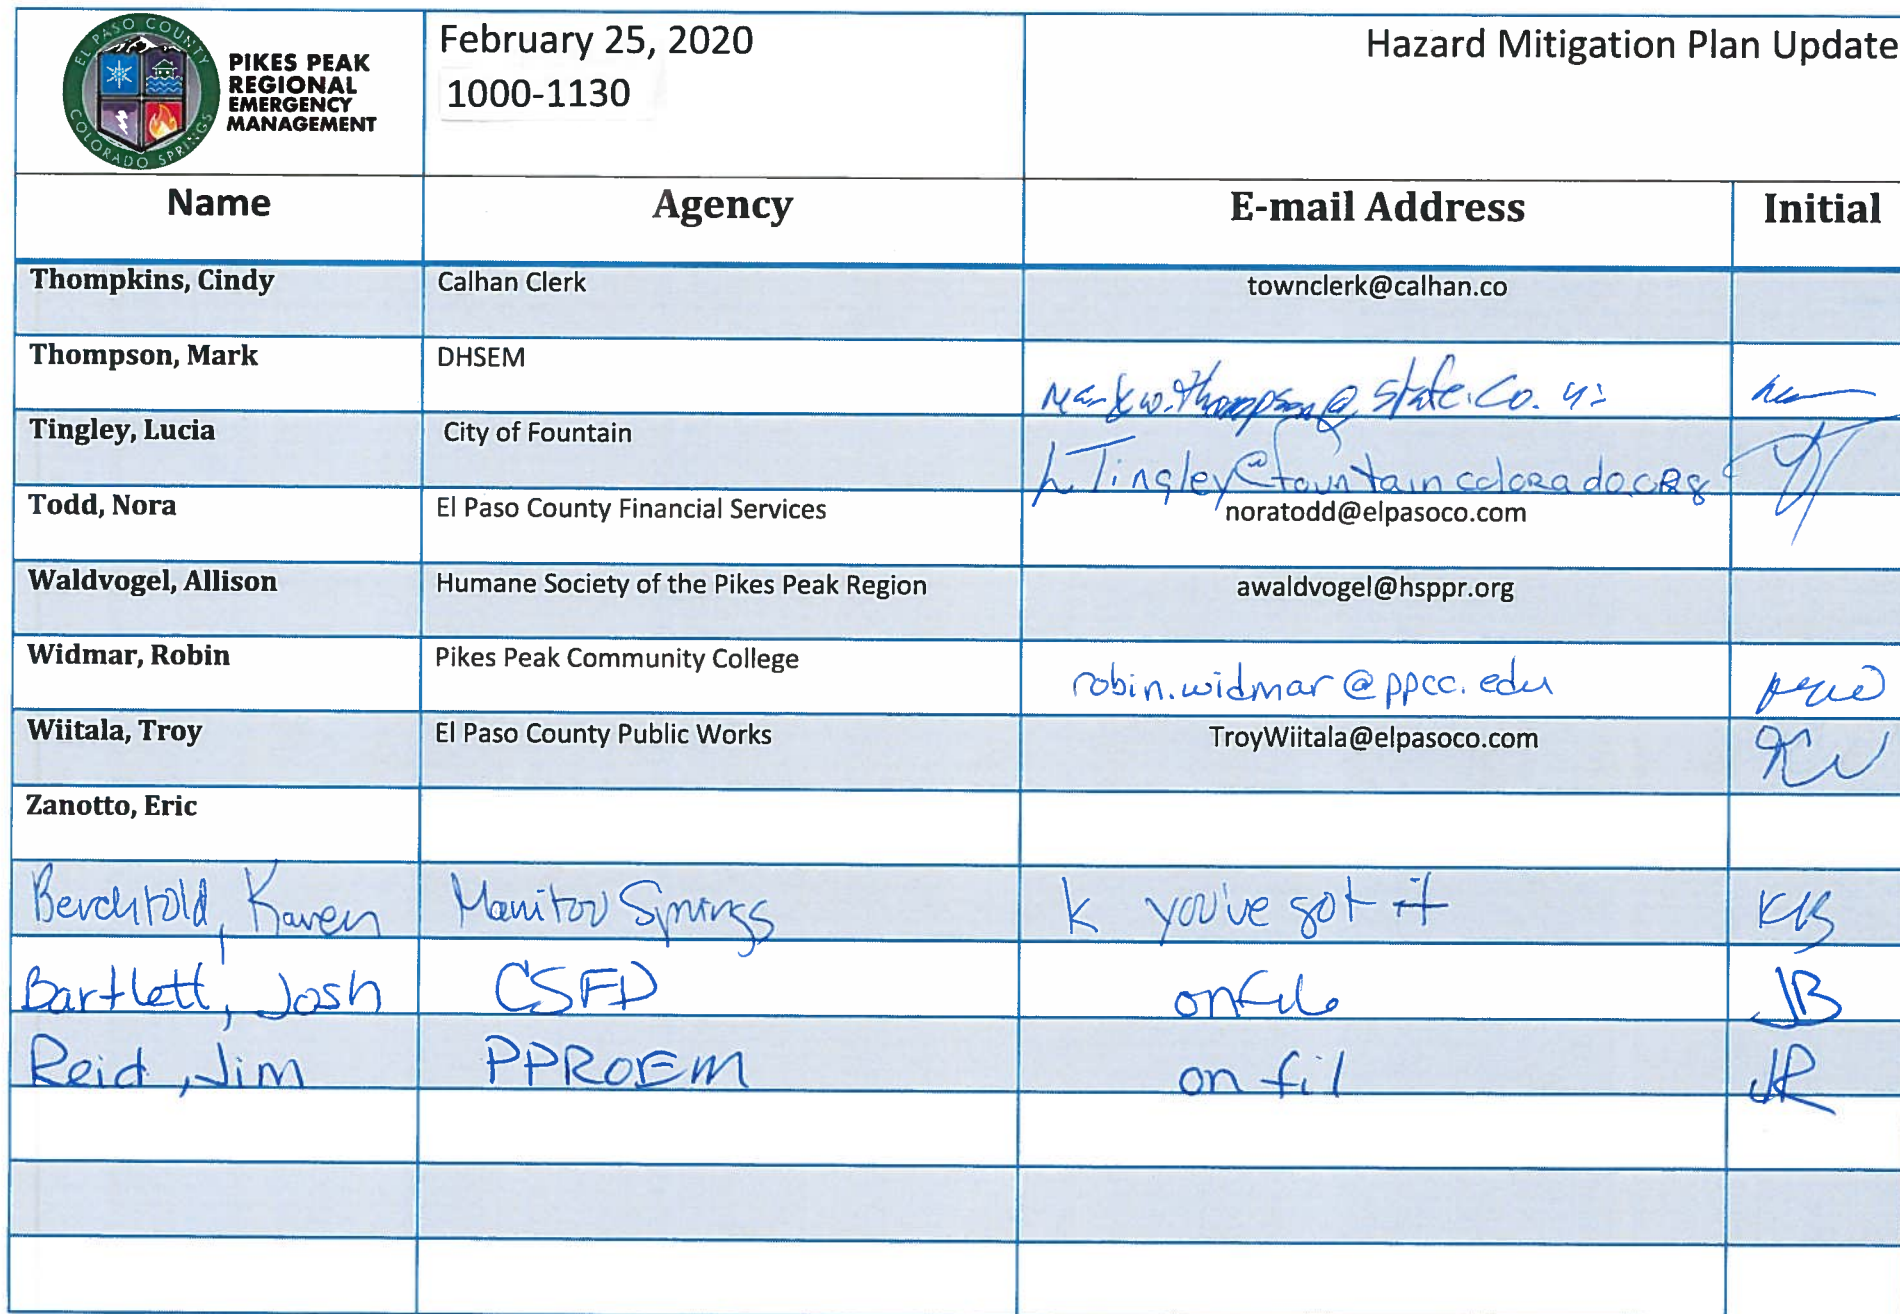 EL PASO COUNTY
COLORADO SPRINGS
PIKES PEAK
REGIONAL
EMERGENCY
MANAGEMENT
February 25, 2020
1000-1130
Hazard Mitigation Plan Update
Name Agency E-mail Address Initial
Thompkins, Cindy Calhan Clerk townclerk@calhan.co
Thompson, Mark DHSEM markw.thompson@state.co.us
Tingley, Lucia City of Fountain LTingley@fountaincolorado.org
Todd, Nora El Paso County Financial Services noratodd@elpasoco.com
Waldvogel, Allison Humane Society of the Pikes Peak Region awaldvogel@hsppr.org
Widmar, Robin Pikes Peak Community College robin.widmar@ppcc.edu
Wiitala, Troy El Paso County Public Works TroyWiitala@elpasoco.com
Zanotto, Eric
Berchtold, Karen Manitou Springs k you've got it KB
Bartlett, Josh CSFD on file JB
Reid, Jim PPROEM on fil JR